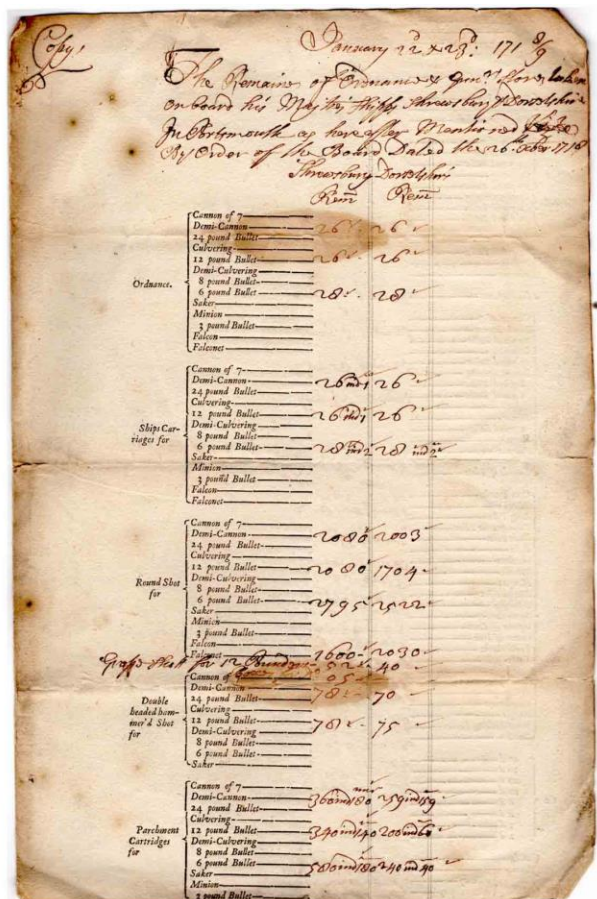 Copy,
January 22d & 23d: 171 8/9
The Remains of Ordnance & Gunrs Stores taken
on board his Majties Shipps Shrewsbury & Dorsetshire
In Portsmouth as hereafter Mentioned
By Order of the Board Dated the 26th 1718
Shrewsbury Dorsetshire
Rem Rem
Ordnance.
Cannon of 7
Demi-Cannon
24 pound Bullet 26 26
Culvering
12 pound Bullet 26 26
Demi-Culvering
8 pound Bullet
6 pound Bullet 28 28
Saker
Minion
3 pound Bullet
Falcon
Falconet
Ships Car-
riages for
Cannon of 7
Demi-Cannon
24 pound Bullet 26 ind 1 26
Culvering
12 pound Bullet 26 ind 1 26
Demi-Culvering
8 pound Bullet
6 pound Bullet 28 ind 2 28 ind 2
Saker
Minion
3 pound Bullet
Falcon
Falconet
Round Shot
for
Cannon of 7
Demi-Cannon
24 pound Bullet 2080 2003
Culvering
12 pound Bullet 2080 1704
Demi-Culvering
8 pound Bullet
6 pound Bullet 2795 2522
Saker
Minion
3 pound Bullet
Falcon
Falconet 1600 2030
Grape Shott for 12 Pounders 52 40
Double
headed ham-
mer'd Shot
for
Cannon of 05
Demi-Cannon
24 pound Bullet 78 70
Culvering
12 pound Bullet 76 75
Demi-Culvering
8 pound Bullet
6 pound Bullet
Saker
Parchment
Cartridges
for
Cannon of 7
Demi-Cannon
24 pound Bullet 360 ind 180 259 ind 159
Culvering
12 pound Bullet 340 ind 140 200 ind 60
Demi-Culvering
8 pound Bullet
6 pound Bullet 580 ind 180 240 ind 40
Saker
Minion
3 pound Bullet